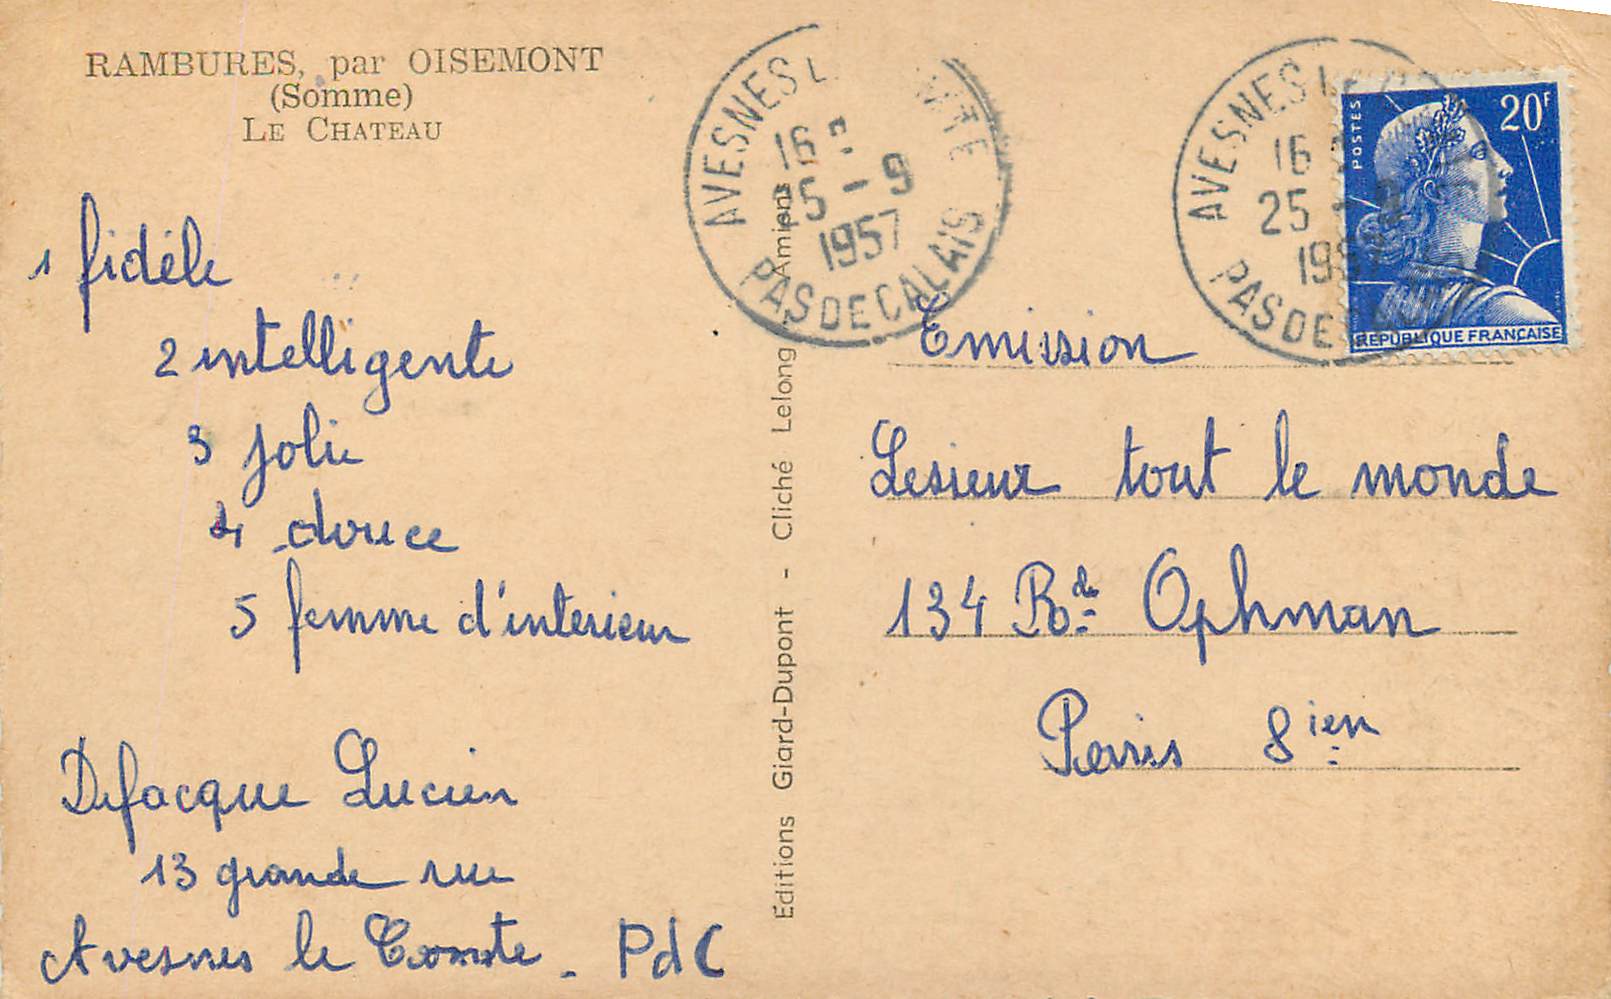 RAMBURES, par OISEMONT
(Somme)
LE CHATEAU
1 fidéle
2 intelligente
3 jolie
4 douce
5 femme d'interieur
Defacque Lucien
13 grande rue
Avesnes le Comte - PdC
Editions Giard-Dupont - Cliché Lelong Amiens
AVESNES L MTE
16
25 - 9
1957
PAS DE CALAIS
AVESNES LE
16
25 - 9
1957
PAS DE
POSTES
20F
REPUBLIQUE FRANÇAISE
Emission
Lesieur tout le monde
134 Bd. Ophman
Paris 8ien